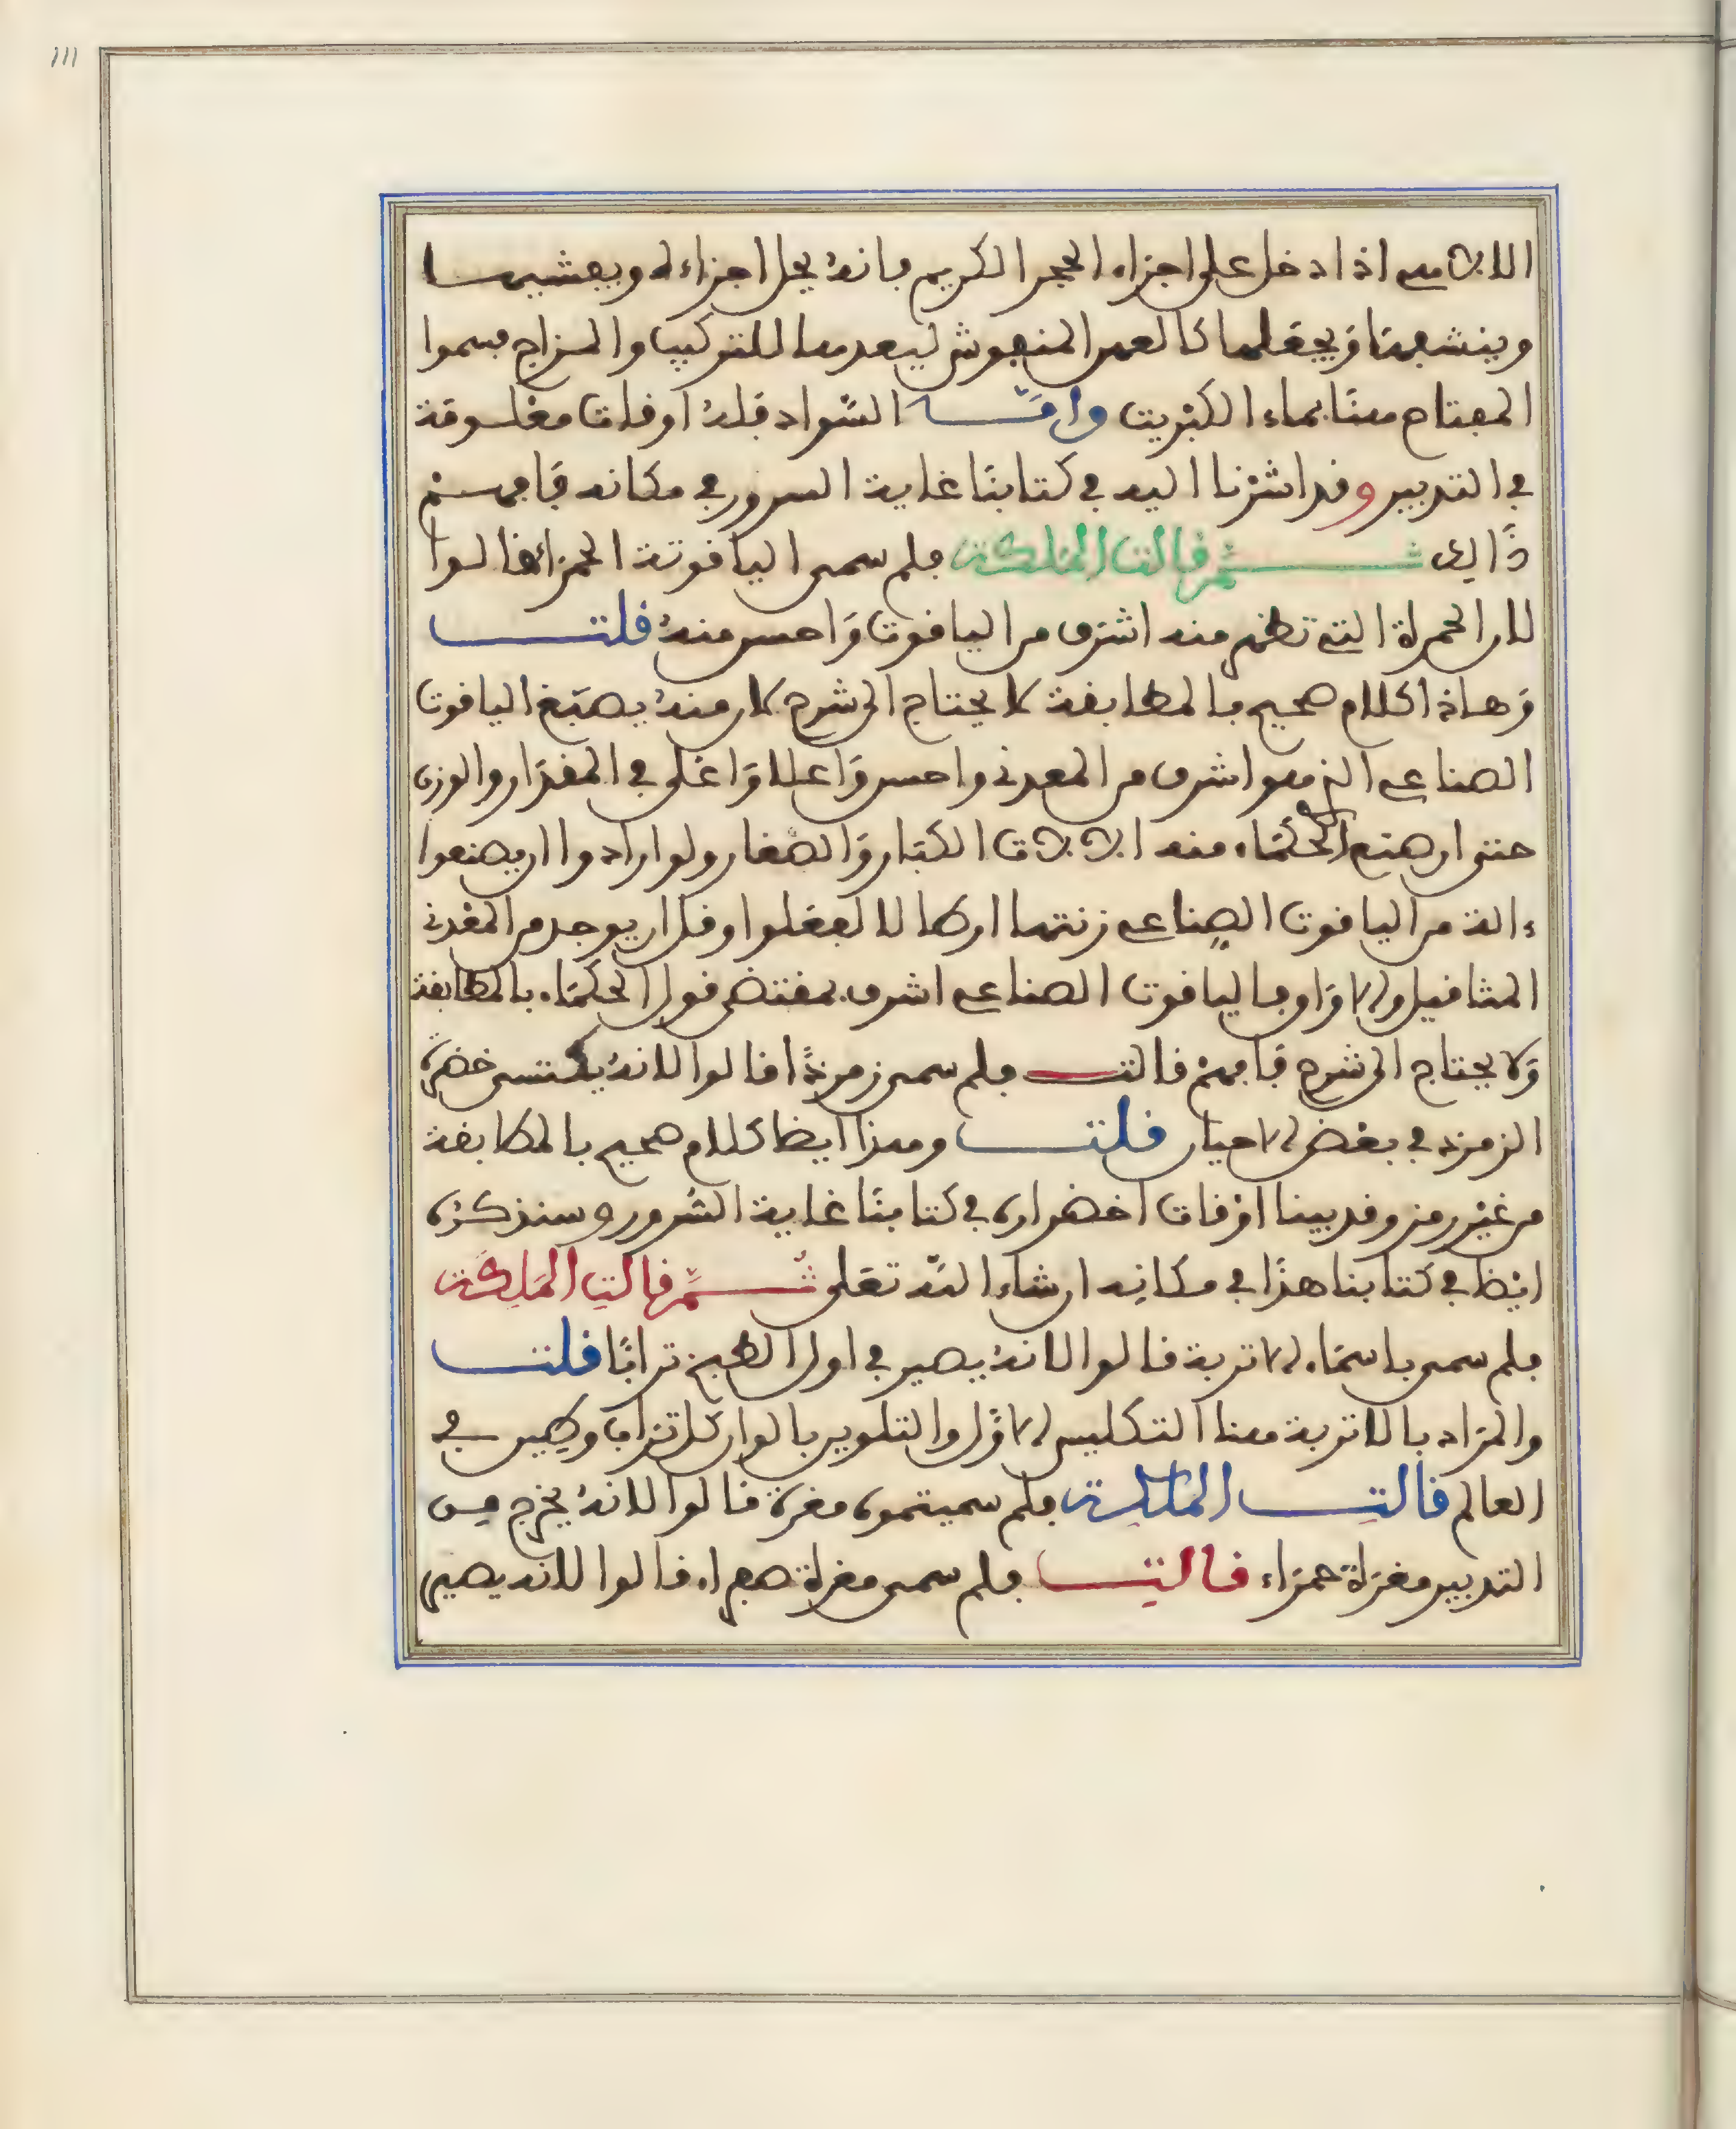 111
اذا دخل على اجزاء الحجر الكريم فانه يحل اجزاءه ويفشيها
وينشفها ويجعلها كالعهن المنفوش ليعدها للتركيب والمزاج فسموا
المفتاح هنا بماء الكبريت واما السواد فله اوقات معلومة
في التدبير وقد اشرنا اليه في كتابنا غاية السرور في مكانه فافهم
ذالك ثم قالت الملكة فلم سمي الياقوتة الحمراء قالوا
لان الحمرة التي تظهر منه اشرف من الياقوت واحسن منه قلت
وهاذا كلام صحيح بالمطابقة لا يحتاج الى شرح لان منه يصبغ الياقوت
الصناعي الذي هو اشرف من المعدني واحسن واعلا واغلى في المقدار والوزن
حتى ان صنع الحكماء منه الكبار والصغار ولو ارادوا ان يصنعوا
ءالة من الياقوت الصناعي زنتها ارطالا لفعلوا وقل ان يوجد من المعدني
المثاقيل والاواق فالياقوت الصناعي اشرف بمقتضى قول الحكماء بالمطابقة
ولا يحتاج الى شرح فافهم قالت فلم سمي زمردا قالوا لانه يكتسي خضرة
الزمرد في بعض الاحيان قلت وهذا ايضا كلام صحيح بالمطابقة
من غير رمز وقد بينا اوقات اخضراره في كتابنا غاية السرور وسنذكره
ايضا في كتابنا هذا في مكانه ان شاء الله تعلى ثم قالت الملكة
فلم سمي باسماء الاتربة قالوا لانه يصير في اول الطبخ ترابا قلت
والمراد بالاتربة هنا التكليس الاول والتلوين بالوان كل تراب وطين في
العالم قالت الملكة فلم سميتموه مغرة قالوا لانه يخرج من
التدبير مغراة حمراء قالت فلم سمي مغراة صفراء قالوا لانه يصير